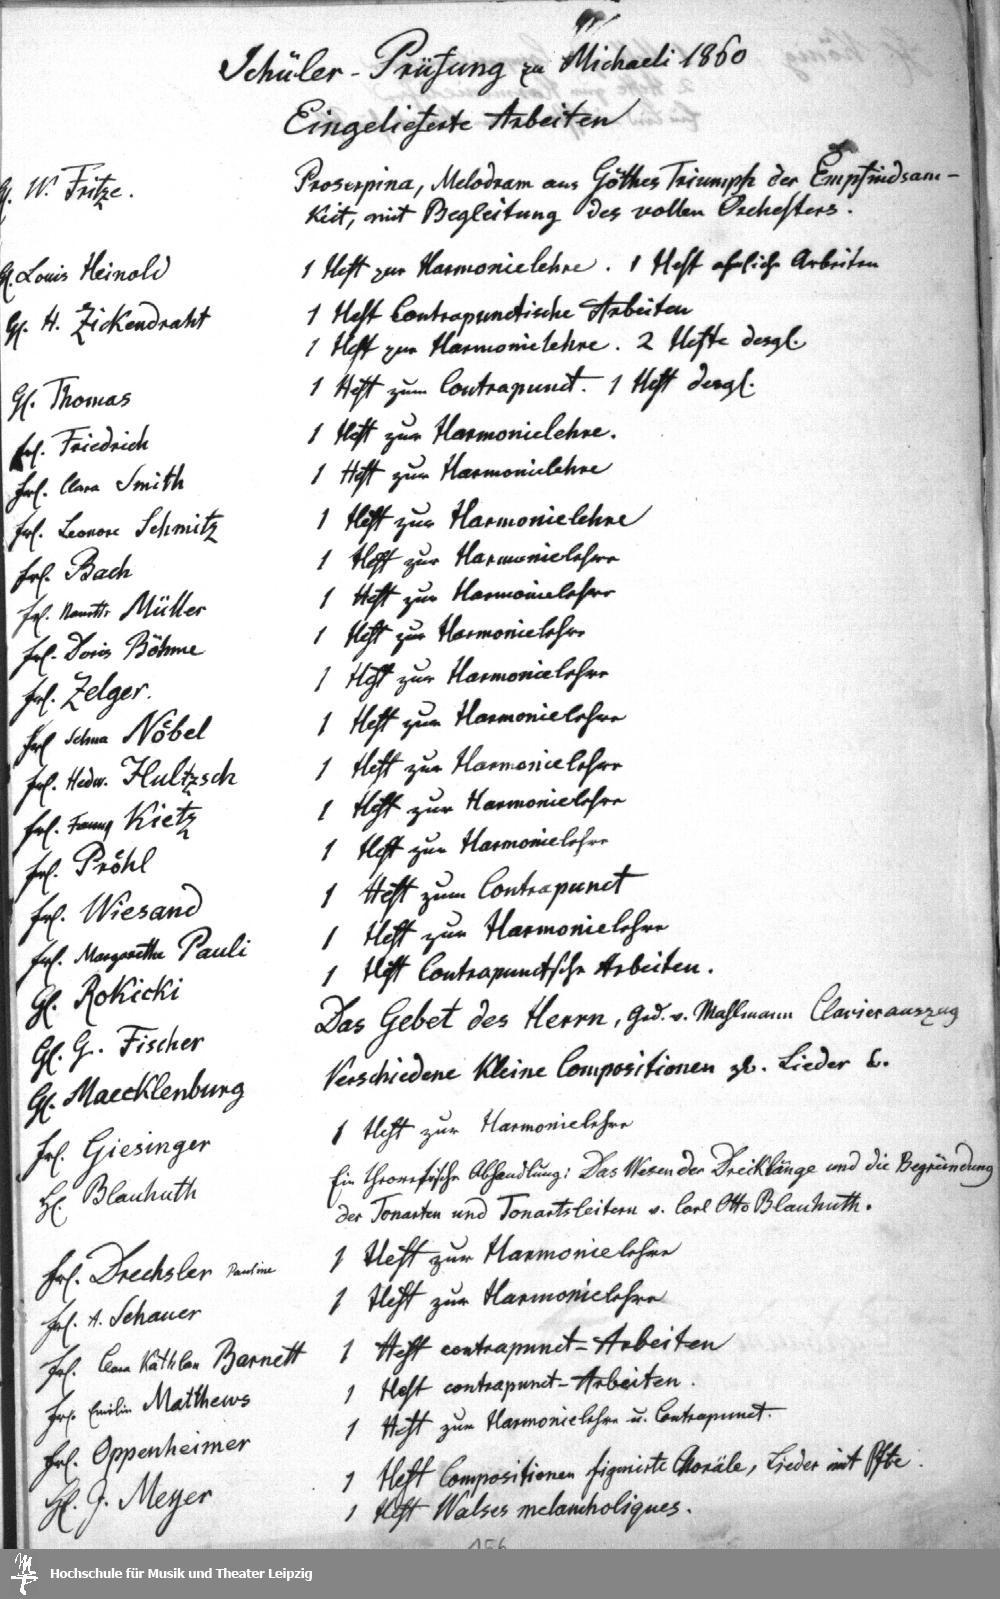 Schüler-Prüfung zu Michaeli 1860
Eingelieferte Arbeiten
W. Fritze. Proserpina, Melodram aus Göthes Triumph der Empfindsam-
keit, mit Begleitung des vollen Orchesters.
Hl. Louis Heinold 1 Heft zur Harmonielehre. 1 Heft Arbeiten
H. Zickendraht 1 Heft Contrapunctische Arbeiten
1 Heft zur Harmonielehre. 2 Hefte desgl.
Thomas 1 Heft zum Contrapunct. 1 Heft desgl.
Frl. Friedrich 1 Heft zur Harmonielehre.
Frl. Clara Smith 1 Heft zur Harmonielehre
Frl. Leonore Schmitz 1 Heft zur Harmonielehre
Frl. Bach 1 Heft zur Harmonielehre
Frl. Nanette Müller 1 Heft zur Harmonielehre
Frl. Doris Böhme 1 Heft zur Harmonielehre
Frl. Zelger. 1 Heft zur Harmonielehre
Frl Selma Nöbel 1 Heft zur Harmonielehre
Frl. Hedw. Hultzsch 1 Heft zur Harmonielehre
Frl. Fanny Kietz 1 Heft zur Harmonielehre
Frl. Pröhl 1 Heft zur Harmonielehre
Frl. Wiesand 1 Heft zum Contrapunct
Frl. Margarethe Pauli 1 Heft zur Harmonielehre
Rokicki 1 Heft Contrapunctsche Arbeiten.
G. Fischer Das Gebet des Herrn, Ged. v. Mahlmann Clavierauszug
Maecklenburg Verschiedene kleine Compositionen Lieder
Frl. Giesinger 1 Heft zur Harmonielehre
Blauhuth Ein theoretische Abhandlung: Das Wesen der Dreiklänge und die Begründung
der Tonarten und Tonartsleitern v. Carl Otto Blauhuth.
Frl. Drechsler Pauline 1 Heft zur Harmonielehre
Frl. A. Schauer 1 Heft zur Harmonielehre
Frl. Clara Barnett 1 Heft contrapunct-Arbeiten
Frl. Emilie Matthews 1 Heft contrapunct-Arbeiten.
Frl. Oppenheimer 1 Heft zur Harmonielehre u. Contrapunct.
J. Meyer 1 Heft Compositionen figurirte Choräle, Lieder mit Pfte.
1 Heft Walses melancholiques.
156
Hochschule für Musik und Theater Leipzig